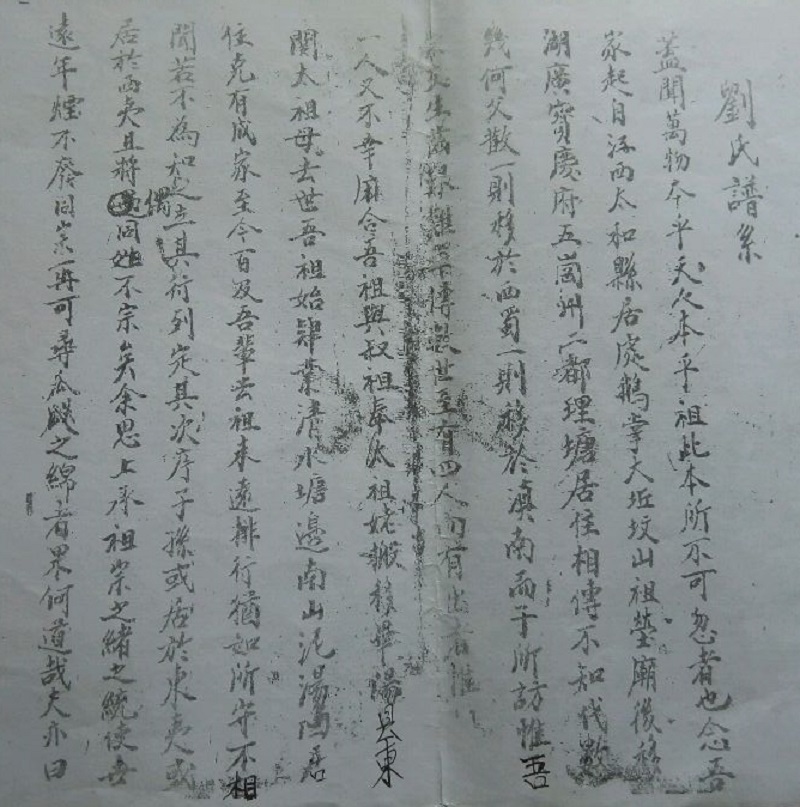 劉氏譜系
蓋聞萬物本乎天人本乎祖此本所不可忽者也念吾
家起自江西太和縣居處鵝掌大坵坟山祖塋廟後移
湖廣寳慶府五崗州六都理塘居住相傳不知代數
幾何父散一則移於西蜀一則移於滇南而予所訪惟吾
生齒艱難世至有四人而有出者惟
一人又不幸麻合吾祖與叔祖奉太祖姥搬移畢陽县東
関太祖母去世吾祖始肆業清水塘邊南山泥湯隅居
住克有成家至今百及吾輩去祖未遠排行猶如所守不相
聞若不為如之立其行列定其次序子孫或居於東夷或
居於西夷且將偶同姓不宗矣余思上承祖宗之緒之統使世
遠年煙不廢同宗再可尋瓜瓞之綿者畢何道哉夫亦曰